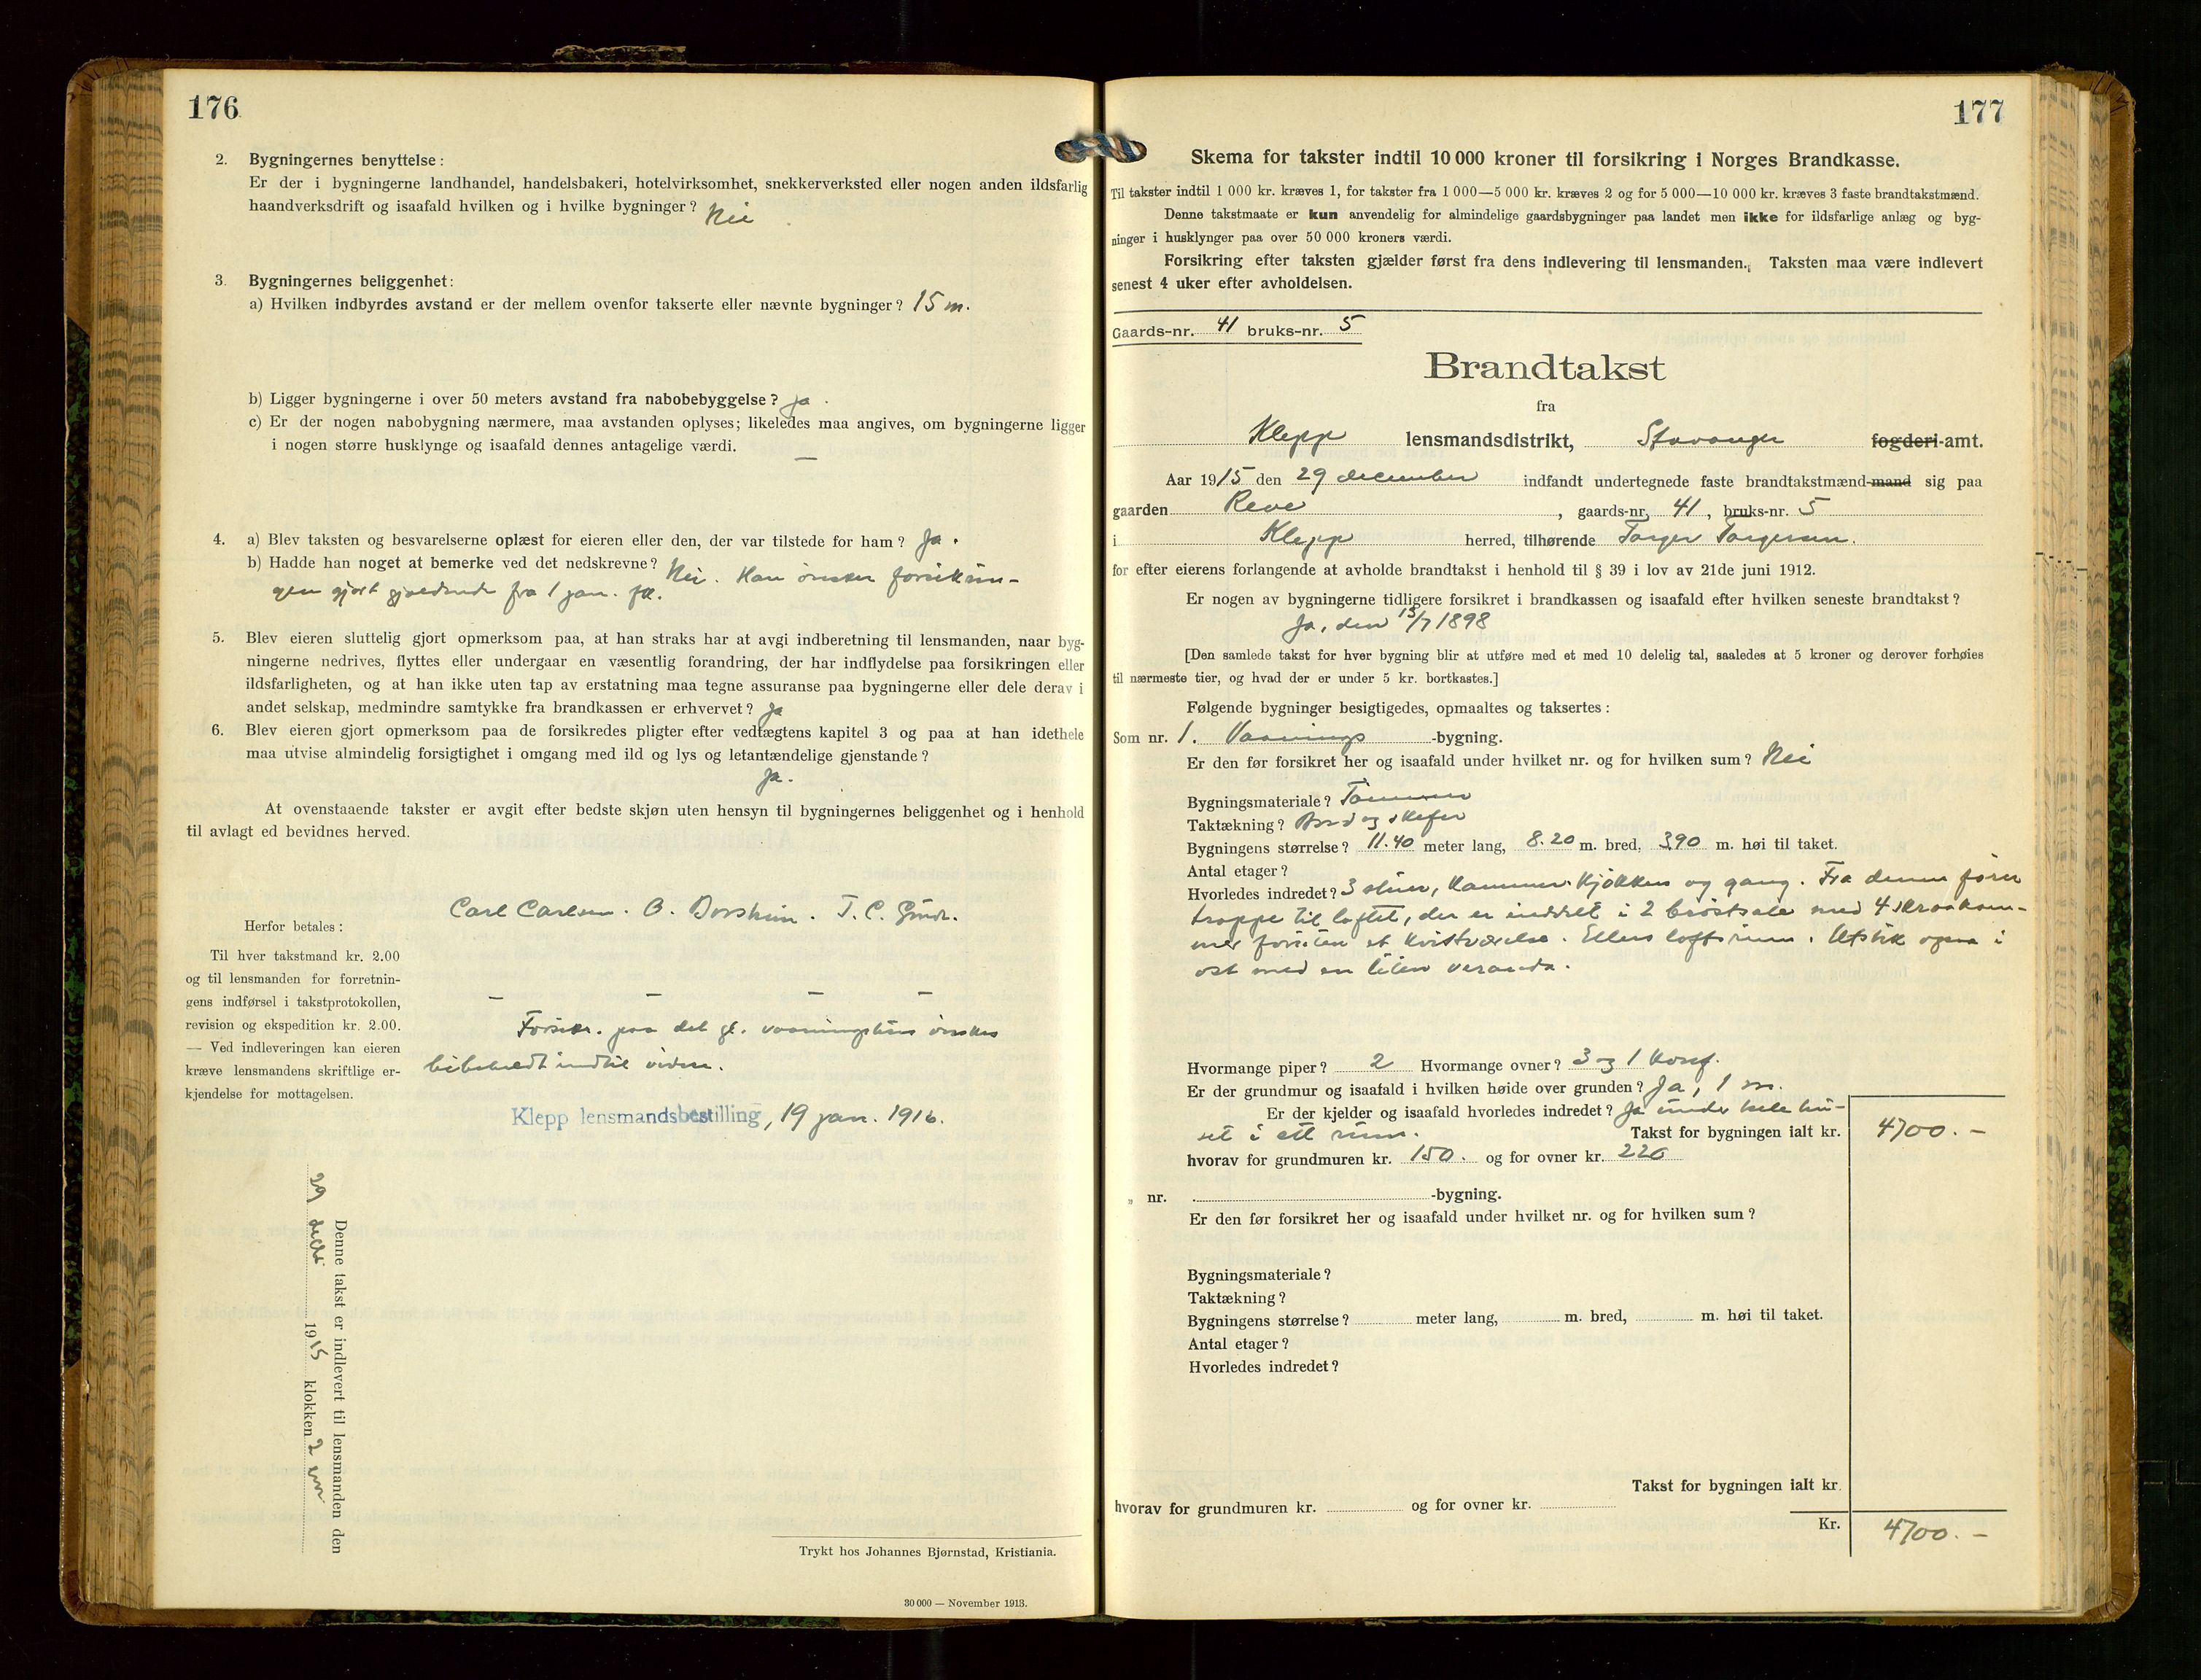 176
2. Bygningernes benyttelse:
Er der i bygningerne landhandel, handelsbakeri, hotelvirksomhet, snekkerverksted eller nogen anden ildsfarlig
haandverksdrift og isaafald hvilken og i hvilke bygninger? Nei
3. Bygningernes beliggenhet:
a) Hvilken indbyrdes avstand er der mellem ovenfor takserte eller nævnte bygninger? 15 m.
b) Ligger bygningerne i over 50 meters avstand fra nabobebyggelse? ja.
c) Er der nogen nabobygning nærmere, maa avstanden oplyses; likeledes maa angives, om bygningerne ligger
i nogen større husklynge og isaafald dennes antagelige værdi. —
4. a) Blev taksten og besvarelserne oplæst for eieren eller den, der var tilstede for ham? Ja.
b) Hadde han noget at bemerke ved det nedskrevne? Nei. Han ønsker forsikrin-
gen gjort gjældende fra 1 jan. fk.
5. Blev eieren sluttelig gjort opmerksom paa, at han straks har at avgi indberetning til lensmanden, naar byg-
ningerne nedrives, flyttes eller undergaar en væsentlig forandring, der har indflydelse paa forsikringen eller
ildsfarligheten, og at han ikke uten tap av erstatning maa tegne assuranse paa bygningerne eller dele derav i
andet selskap, medmindre samtykke fra brandkassen er erhvervet? Ja
6. Blev eieren gjort opmerksom paa de forsikredes pligter efter vedtægtens kapitel 3 og paa at han idethele
maa utvise almindelig forsigtighet i omgang med ild og lys og letantændelige gjenstande?
Ja.
At ovenstaaende takster er avgit efter bedste skjøn uten hensyn til bygningernes beliggenhet og i henhold
til avlagt ed bevidnes herved.
Carl Carlsen. O. Borsheim. T. C. Grude.
Herfor betales:
Til hver takstmand kr. 2.00
og til lensmanden for forretnin-
gens indførsel i takstprotokollen,
revision og ekspedition kr. 2.00.
— Ved indleveringen kan eieren
kræve lensmandens skriftlige er-
kjendelse for mottagelsen.
— — — —
Forsikr. paa det gl. vaaningshus ønskes
bibeholdt indtil videre.
Klepp lensmandsbestilling, 19 jan. 1916.
Denne takst er indlevert til lensmanden den
29 decbr 1915 klokken 2 em
Trykt hos Johannes Bjørnstad, Kristiania.
30 000 — November 1913.
177
Skema for takster indtil 10 000 kroner til forsikring i Norges Brandkasse.
Til takster indtil 1 000 kr. kræves 1, for takster fra 1 000—5 000 kr. kræves 2 og for 5 000—10 000 kr. kræves 3 faste brandtakstmænd.
Denne takstmaate er kun anvendelig for almindelige gaardsbygninger paa landet men ikke for ildsfarlige anlæg og byg-
ninger i husklynger paa over 50 000 kroners værdi.
Forsikring efter taksten gjælder først fra dens indlevering til lensmanden. Taksten maa være indlevert
senest 4 uker efter avholdelsen.
Gaards-nr. 41 bruks-nr. 5
Brandtakst
fra
Klepp lensmandsdistrikt, Stavanger fogderi-amt.
Aar 1915 den 29 december indfandt undertegnede faste brandtakstmænd-mand sig paa
gaarden Reve, gaards-nr. 41, bruks-nr. 5
i Klepp herred, tilhørende Torger Torgersen.
for efter eierens forlangende at avholde brandtakst i henhold til § 39 i lov av 21de juni 1912.
Er nogen av bygningerne tidligere forsikret i brandkassen og isaafald efter hvilken seneste brandtakst?
Ja, den 13/7 1898
[Den samlede takst for hver bygning blir at utføre med et med 10 delelig tal, saaledes at 5 kroner og derover forhøies
til nærmeste tier, og hvad der er under 5 kr. bortkastes.]
Følgende bygninger besigtigedes, opmaaltes og taksertes:
Som nr. 1. Vaanings-bygning.
Er den før forsikret her og isaafald under hvilket nr. og for hvilken sum? Nei
Bygningsmateriale? Tømmer
Taktækning? Bord og skifer
Bygningens størrelse? 11.40 meter lang, 8.20 m. bred, 3.90 m. høi til taket.
Antal etager?
Hvorledes indredet? 3 stuer, kammer, kjøkken og gang. Fra denne fører
trappe til loftet, der er inddelt i 2 brøstsale med 4 skraakam-
mer foruten et kvistværelse. Ellers loftsrum. Utstik ogsaa i
øst med en liten veranda.
Hvormange piper? 2 Hvormange ovner? 3 og 1 komf.
Er der grundmur og isaafald i hvilken høide over grunden? Ja, 1 m.
Er der kjelder og isaafald hvorledes indredet? Ja under hele hu-
set i ett rum. Takst for bygningen ialt kr. 4700.—
hvorav for grundmuren kr. 150. og for ovner kr. 220
„ nr. -bygning.
Er den før forsikret her og isaafald under hvilket nr. og for hvilken sum?
Bygningsmateriale?
Taktækning?
Bygningens størrelse? meter lang, m. bred, m. høi til taket.
Antal etager?
Hvorledes indredet?
Takst for bygningen ialt kr.
hvorav for grundmuren kr. og for ovner kr.
Kr. 4700.—